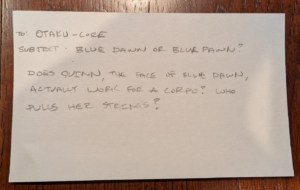 TO OTAKU-CORE
SUBJECT: BLUE DAWN OR BLUE PAWN?
DOES QUINN, THE FACE OF BLUE DAWN,
ACTUALLY WORK FOR A CORPO? WHO
PULLS HER STRINGS?